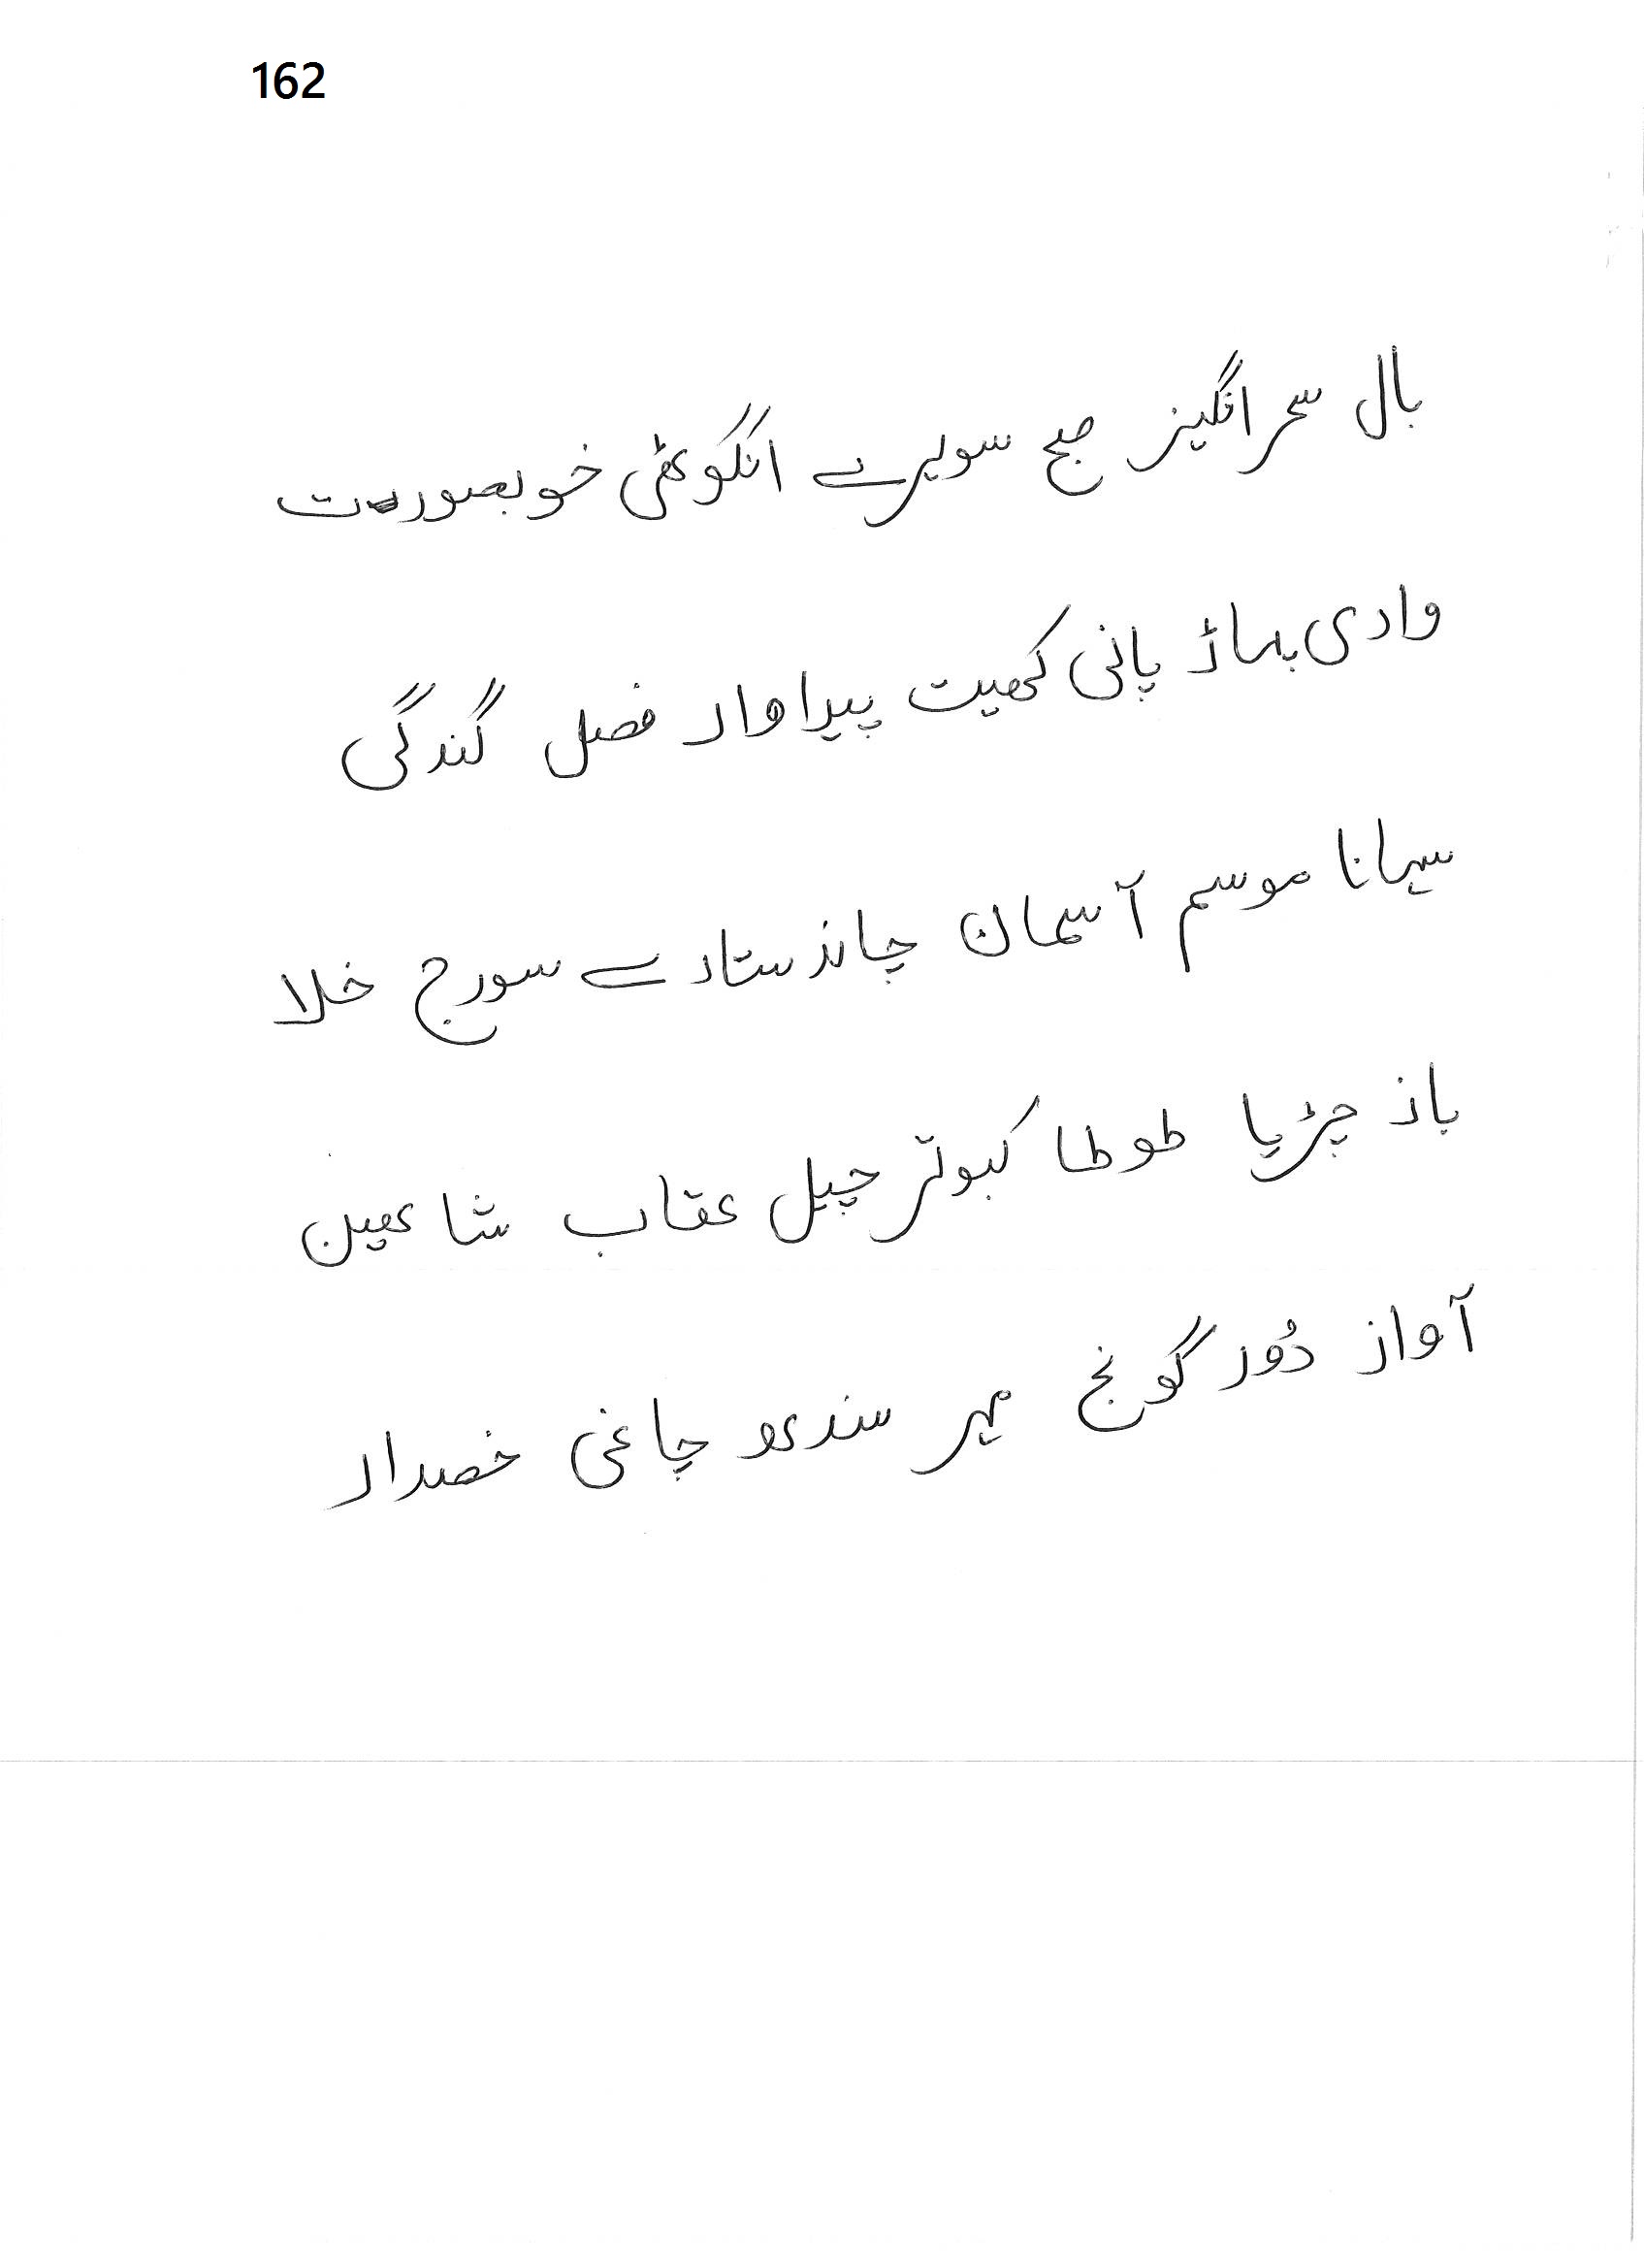 162
بال سحر انگیز صبح سویرے انگوٹھی خوبصورت
وادی پہاڑ پانی کھیت پیداوار فصل گندگی
سہانا موسم آسمان چاند ستارے سورج خلا
باز چڑیا طوطا کبوتر چیل عقاب شاھین
آواز دُور گونج مہر سندھ چاغی خضدار